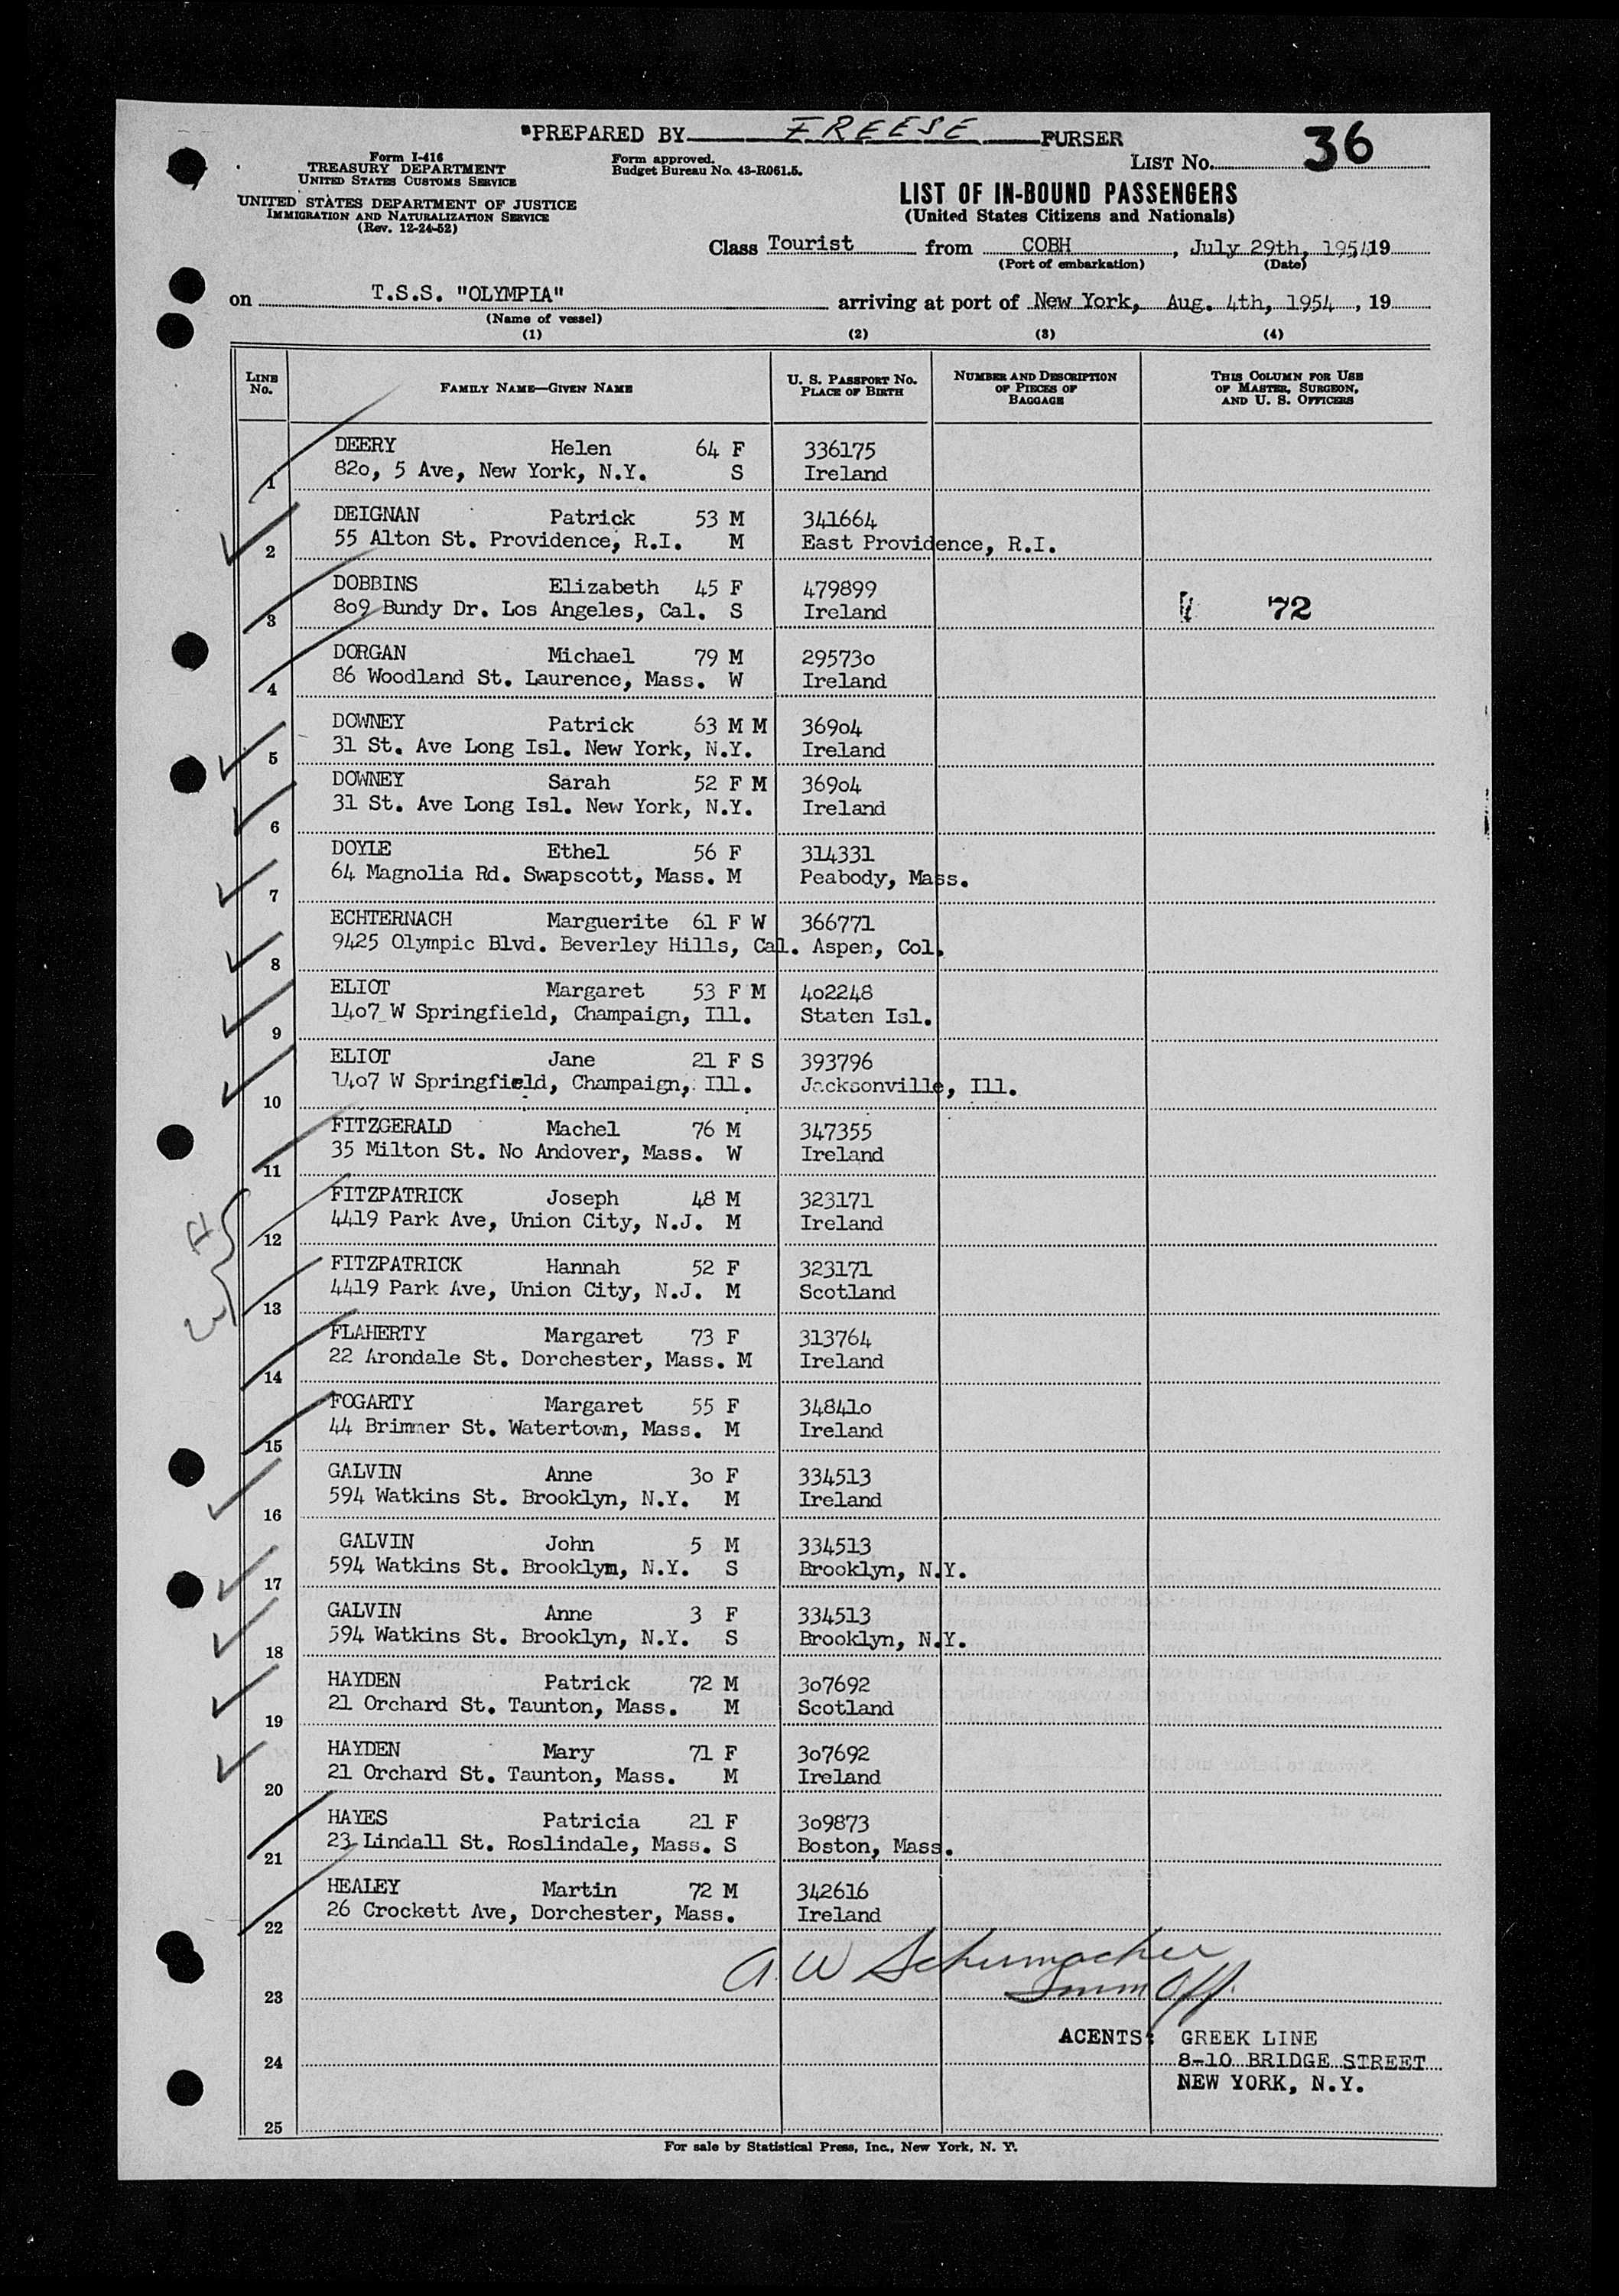 PREPARED BY FREESE PURSER
Form I-416
TREASURY DEPARTMENT
UNITED STATES CUSTOMS SERVICE
UNITED STATES DEPARTMENT OF JUSTICE
IMMIGRATION AND NATURALIZATION SERVICE
(Rev. 12-24-52)
Form approved.
Budget Bureau No. 43-R061.5.
LIST No. 36
LIST OF IN-BOUND PASSENGERS
(United States Citizens and Nationals)
Class Tourist from COBH, July 29th, 1954 19
(Port of embarkation) (Date)
on T.S.S. "OLYMPIA" arriving at port of New York, Aug. 4th, 1954, 19
(Name of vessel)
(1) (2) (3) (4)
LINE No. FAMILY NAME—GIVEN NAME U. S. PASSPORT No. PLACE OF BIRTH NUMBER AND DESCRIPTION OF PIECES OF BAGGAGE THIS COLUMN FOR USE OF MASTER, SURGEON, AND U. S. OFFICERS
DEERY Helen 64 F 336175
1 82o, 5 Ave, New York, N.Y. S Ireland
DEIGNAN Patrick 53 M 341664
2 55 Alton St. Providence, R.I. M East Providence, R.I.
DOBBINS Elizabeth 45 F 479899
3 8o9 Bundy Dr. Los Angeles, Cal. S Ireland 72
DORGAN Michael 79 M 29573o
4 86 Woodland St. Laurence, Mass. W Ireland
DOWNEY Patrick 63 M M 369o4
5 31 St. Ave Long Isl. New York, N.Y. Ireland
DOWNEY Sarah 52 F M 369o4
6 31 St. Ave Long Isl. New York, N.Y. Ireland
DOYLE Ethel 56 F 314331
7 64 Magnolia Rd. Swapscott, Mass. M Peabody, Mass.
ECHTERNACH Marguerite 61 F W 366771
8 9425 Olympic Blvd. Beverley Hills, Cal. Aspen, Col.
ELIOT Margaret 53 F M 4o2248
9 14o7 W Springfield, Champaign, Ill. Staten Isl.
ELIOT Jane 21 F S 393796
10 14o7 W Springfield, Champaign, Ill. Jacksonville, Ill.
FITZGERALD Machel 76 M 347355
11 35 Milton St. No Andover, Mass. W Ireland
FITZPATRICK Joseph 48 M 323171
12 4419 Park Ave, Union City, N.J. M Ireland
FITZPATRICK Hannah 52 F 323171
13 4419 Park Ave, Union City, N.J. M Scotland
FLAHERTY Margaret 73 F 313764
14 22 Arondale St. Dorchester, Mass. M Ireland
FOGARTY Margaret 55 F 34841o
15 44 Brimmer St. Watertown, Mass. M Ireland
GALVIN Anne 3o F 334513
16 594 Watkins St. Brooklyn, N.Y. M Ireland
GALVIN John 5 M 334513
17 594 Watkins St. Brooklyn, N.Y. S Brooklyn, N.Y.
GALVIN Anne 3 F 334513
18 594 Watkins St. Brooklyn, N.Y. S Brooklyn, N.Y.
HAYDEN Patrick 72 M 3o7692
19 21 Orchard St. Taunton, Mass. M Scotland
HAYDEN Mary 71 F 3o7692
20 21 Orchard St. Taunton, Mass. M Ireland
HAYES Patricia 21 F 3o9873
21 23 Lindall St. Roslindale, Mass. S Boston, Mass.
HEALEY Martin 72 M 342616
22 26 Crockett Ave, Dorchester, Mass. Ireland
A. W Schumacher
23 Imm Off.
AGENTS: GREEK LINE
24 8-10 BRIDGE STREET
NEW YORK, N.Y.
25
For sale by Statistical Press, Inc., New York, N. Y.